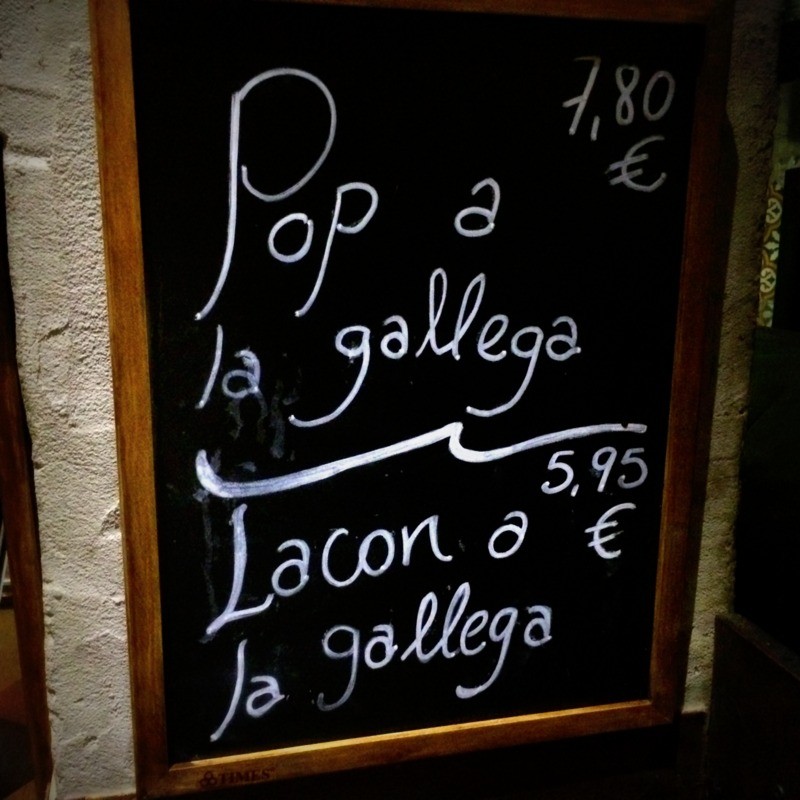 7,80
€
Pop a
la gallega
5,95
€
Lacon a
la gallega
TIMES